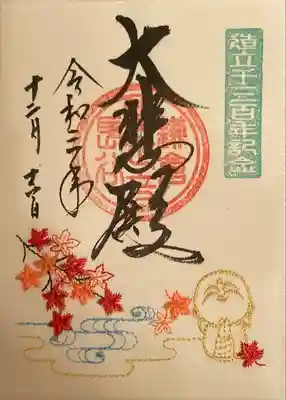 造立千三百年記念
大悲殿
鎌倉
令和三年
十二月